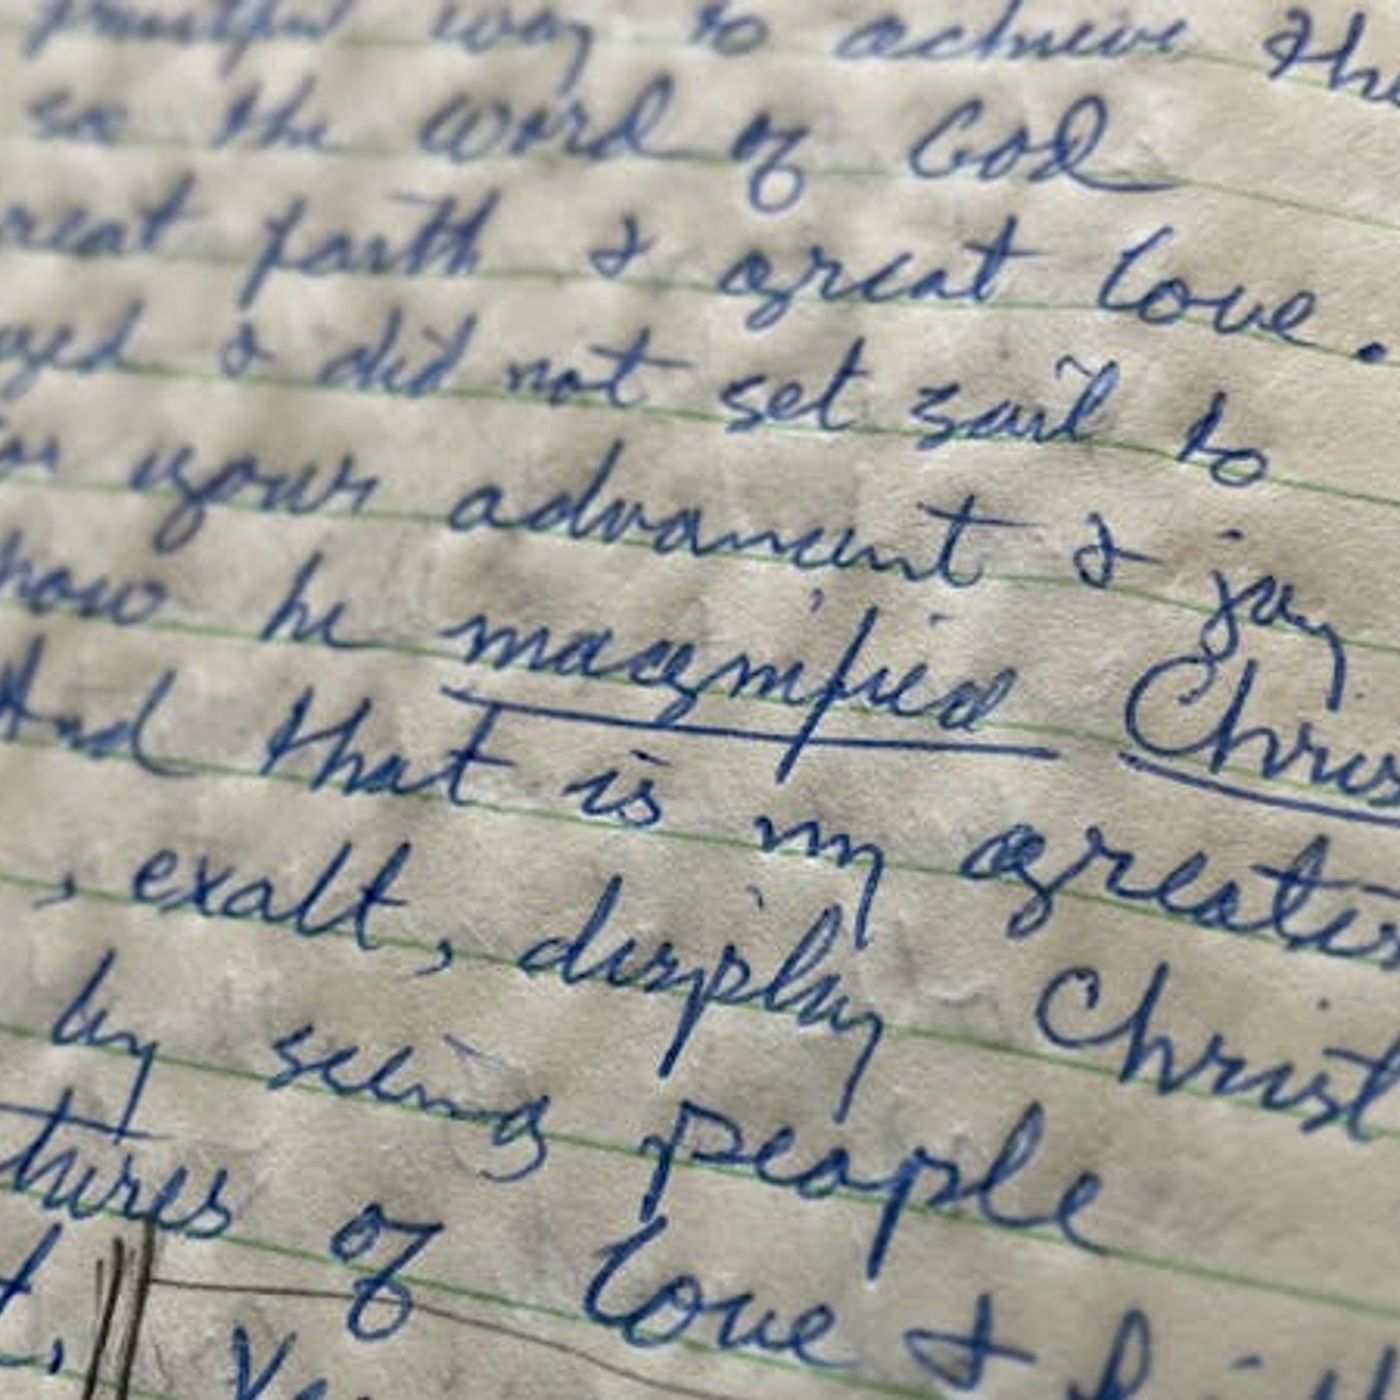 way to achieve the
the word of God
reat faith & great love.
& did not set sail to
your advancent & joy
how he magnified Chris
And that is my greates
, exalt, display Christ
by seeing people
tures of love &
t,